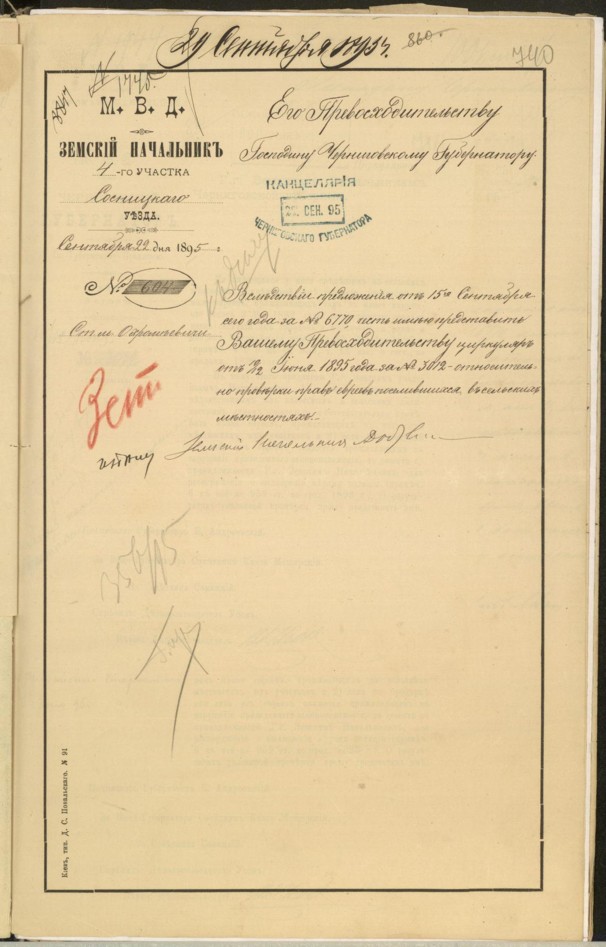 29 Сентября 1895 г.
860
740
3847
N 1740
М. В. Д.
ЗЕМСКІЙ НАЧАЛЬНИКЪ
4-го УЧАСТКА
Сосницкаго
УѢЗДА.
Сентября 22 дня 1895 г.
№ 604
Его Превосходительству
Господину Черниговскому Губернатору.
КАНЦЕЛЯРІЯ
СЕН. 95
ЧЕРНИГОВСКАГО ГУБЕРНАТОРА
Вслѣдствіе предложенія отъ 15го Сентября
сего года за № 6770, честь имѣю представить
Вашему Превосходительству циркуляръ
отъ 10/12 Іюня 1895 года за № 3012 - относитель-
но провѣрки правъ евреевъ поселившихся въ сельскихъ
мѣстностяхъ.
Земскій Начальникъ
356/95
Кіевъ, тип. Д. С. Повальскаго. № 91